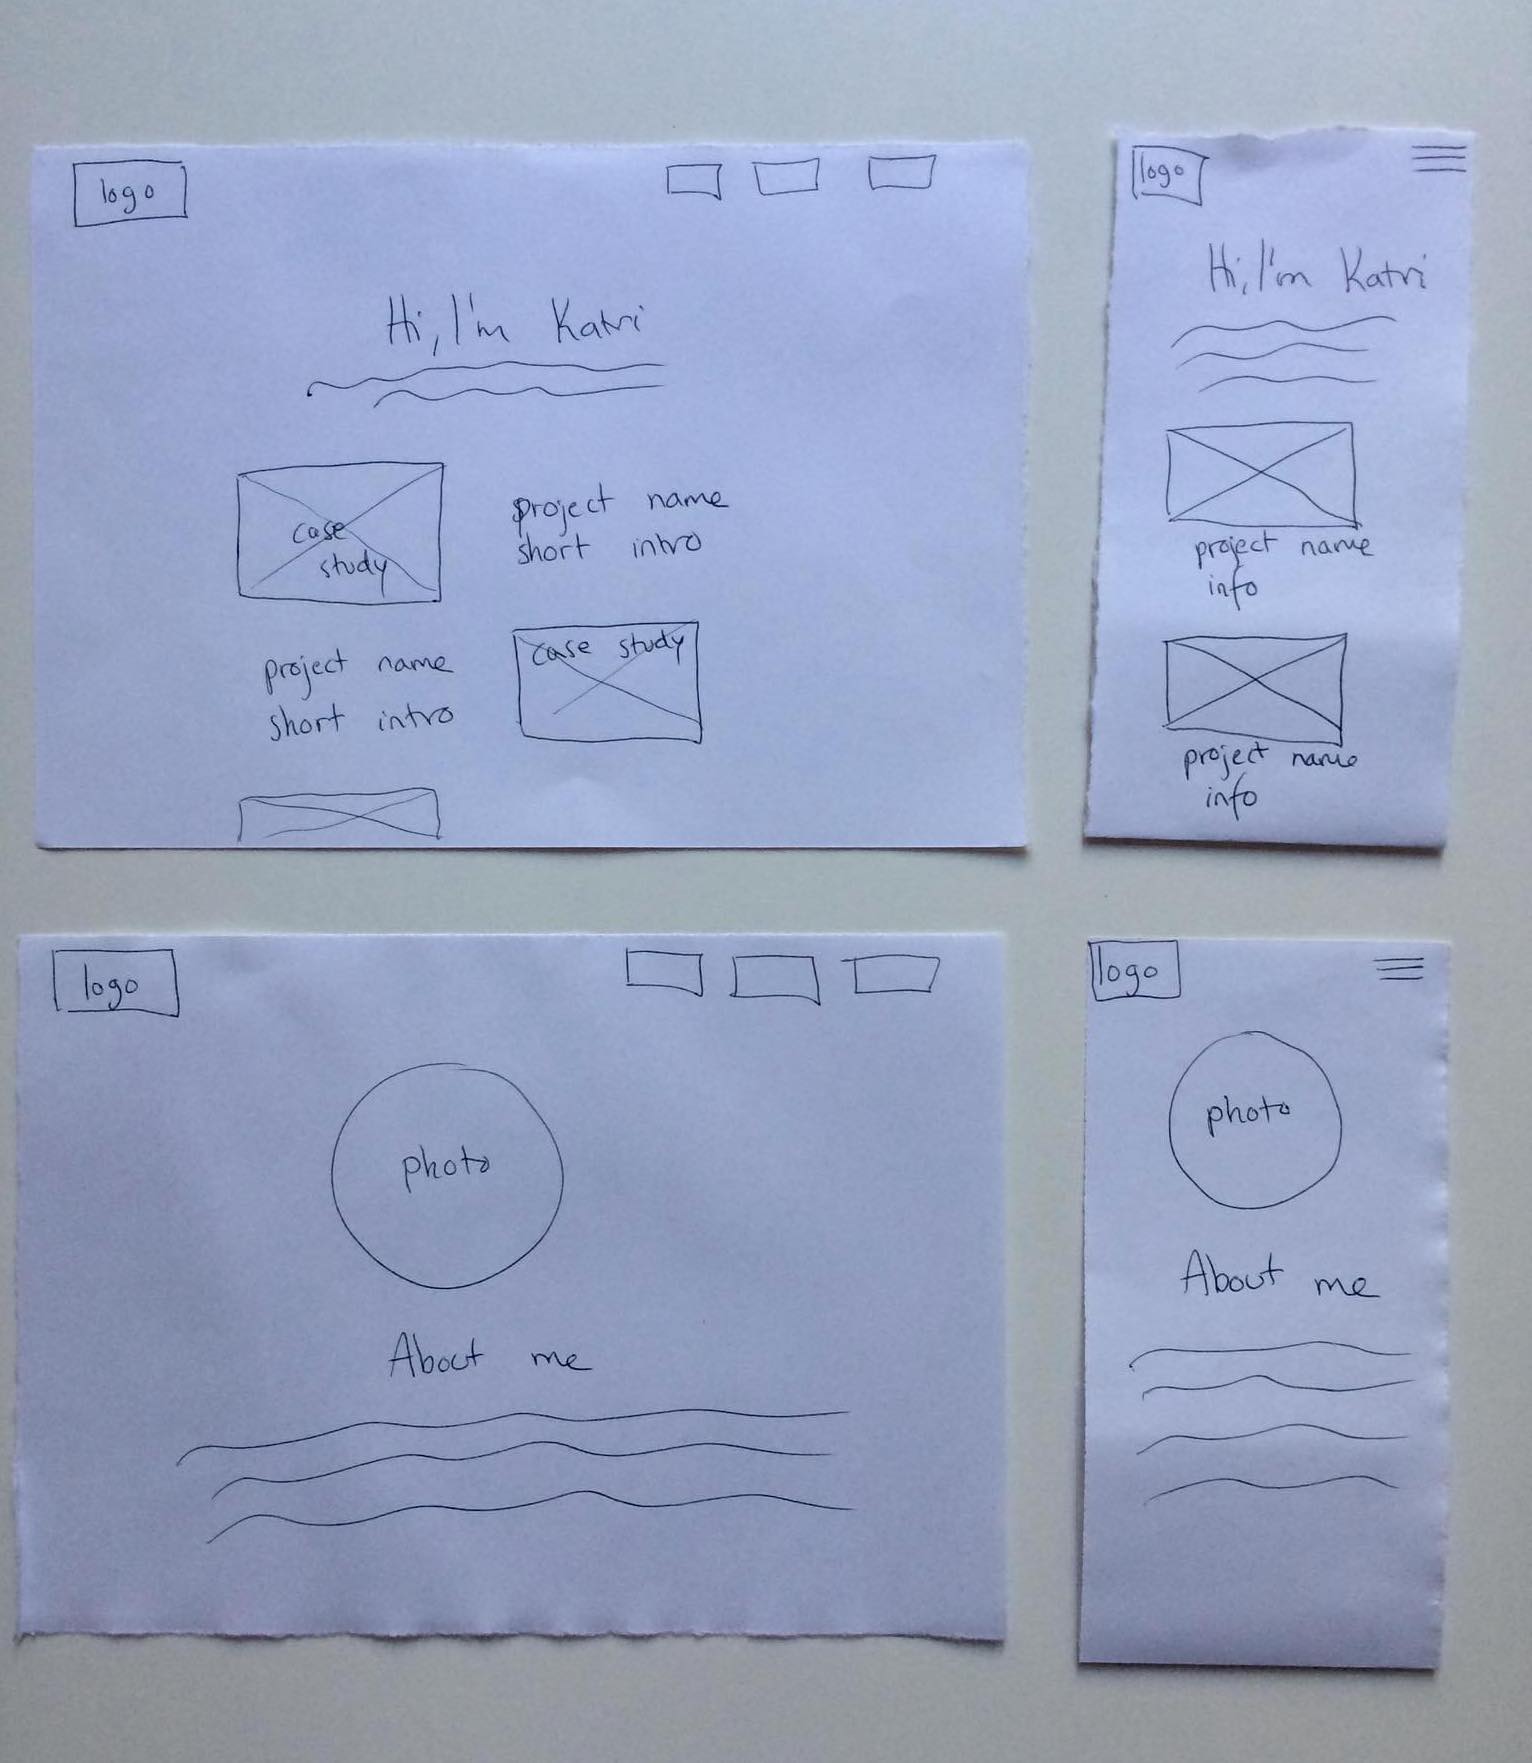 logo
Hi, I'm Katri
case
study
project name
short intro
project name
short intro
case study
logo
Hi, I'm Katri
project name
info
project name
info
logo
photo
About me
logo
photo
About me